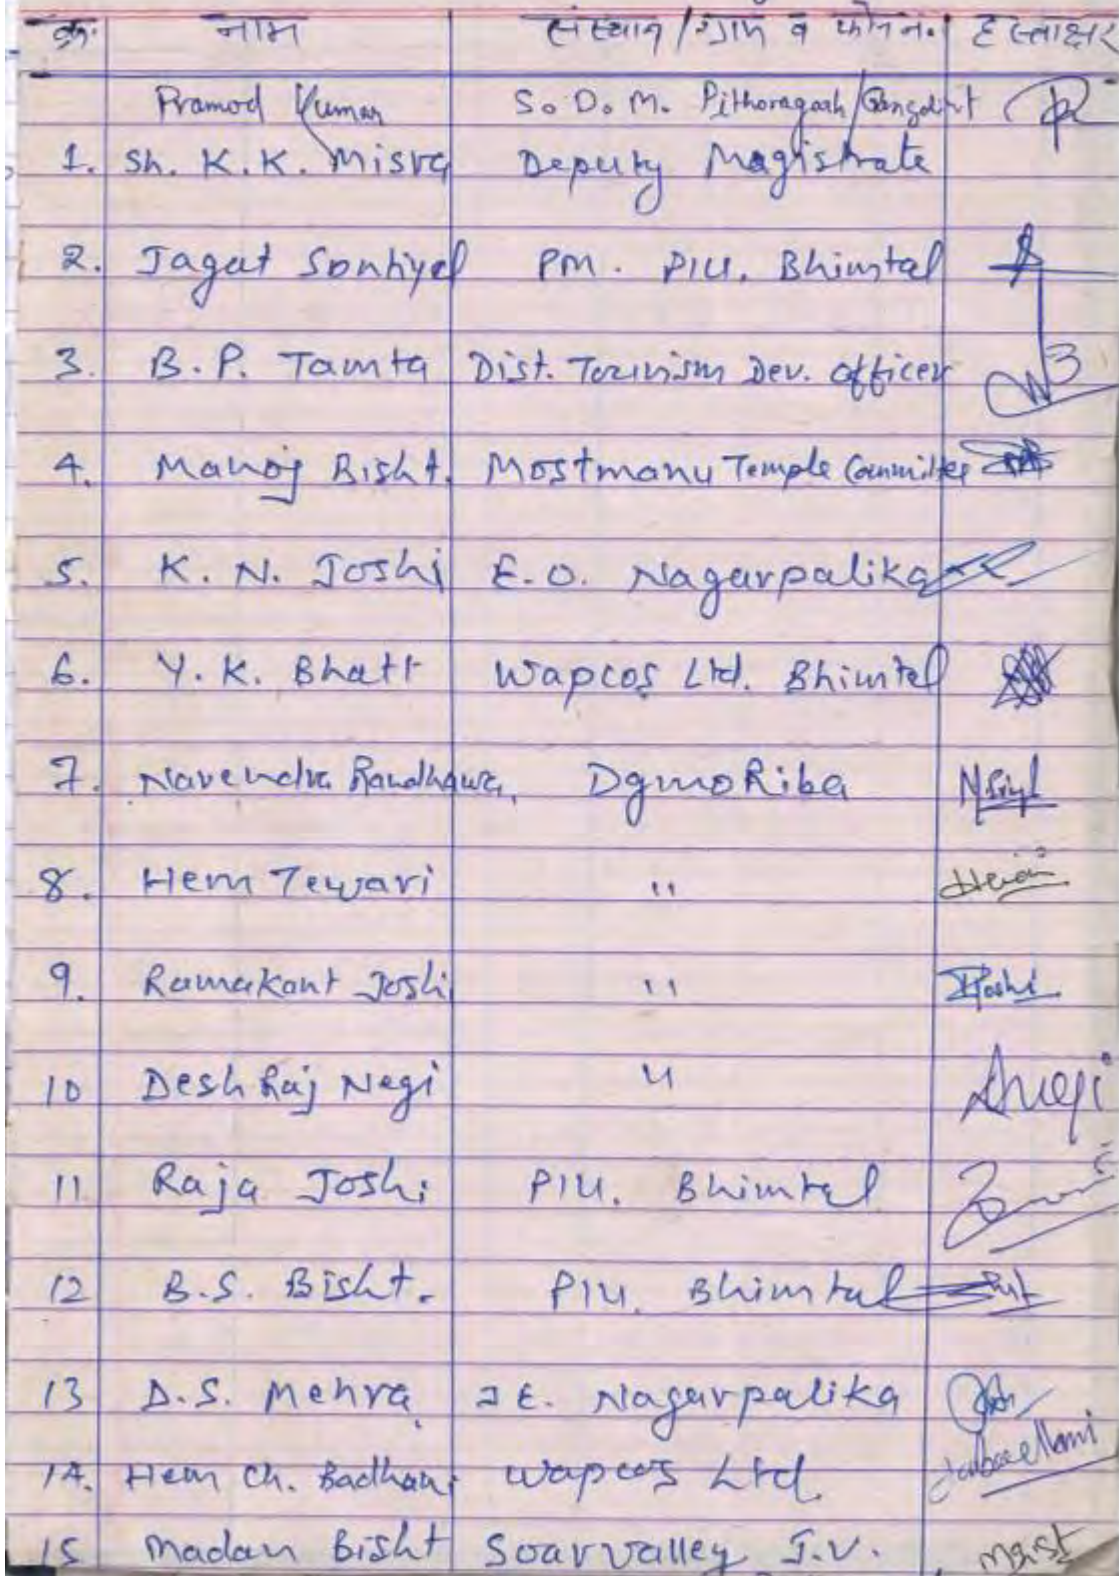 क्र. नाम संस्थान/ग्राम व फोन न. हस्ताक्षर
Pramod Kumar S.D.M. Pithoragarh/Gangolihat
1. Sh. K.K. Misra Deputy Magistrate
2. Jagat Sontiyal PM. PIU. Bhimtal
3. B.P. Tamta Dist. Tourism Dev. Officer
4. Manoj Bisht. Mostmanu Temple Committee
5. K.N. Joshi E.O. Nagarpalika
6. Y.K. Bhatt Wapcos Ltd. Bhimtal
7. Narendra Randhawa, DgmoRiba
8. Hem Tewari "
9. Ramakant Joshi "
10 Desh Raj Negi " Negi
11 Raja Joshi PIU. Bhimtal
12 B.S. Bisht. PIU. Bhimtal
13 D.S. Mehra J E. Nagarpalika
14. Hem Ch. Badhani Wapcos Ltd.
15 Madan Bisht Soarvalley J.V.